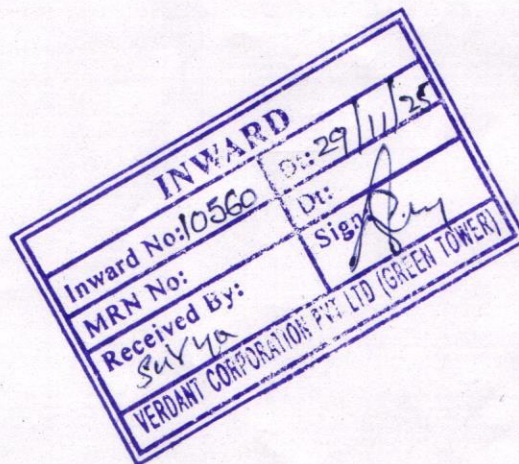 INWARD
Inward No: 10560 Dt: 29/11/25
MRN No: Dt:
Received By: Sign
Surya
VERDANT CORPORATION PVT LTD (GREEN TOWER)